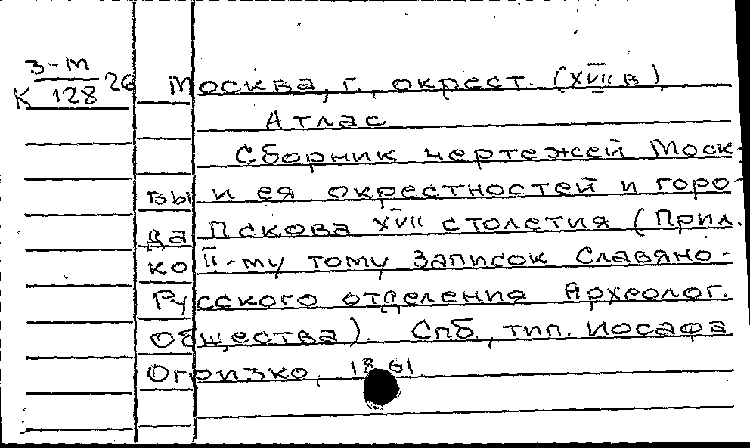 З-М
К 128 26
Москва, г., окрест. (XVII в)
Атлас
Сборник чертежей Моск-
вы и ея окрестностей и горо-
да Пскова XVII столетия (Прил.
ко II-му тому Записок Славяно-
Русского отделения Археолог.
Общества). Спб, тип. Иосафа
Огризко, 1861.